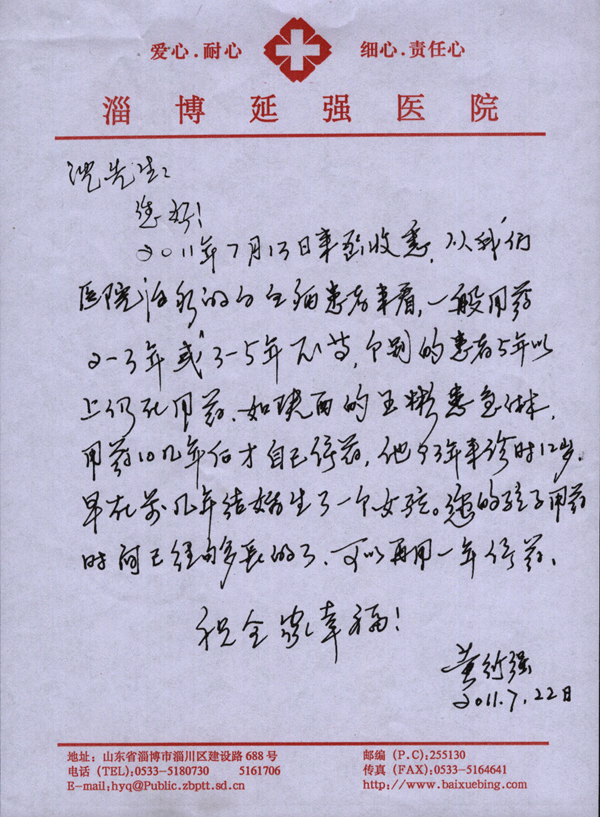 爱心.耐心 细心.责任心
淄博延强医院
沈先生:
您好!
2011年7月13日来函收悉,从我们
医院治疗的白血病患者来看,一般用药
2-3年或3-5年不等,个别的患者5年以
上仍在用药.如陕西的王 患急淋,
用药10几年后才自己停药,他93年来诊时12岁.
早在前几年结婚生了一个女孩。您的孩子用药
时间已经够长的了、可以再用一年停药、
祝全家幸福!
黄衍强
2011.7.22日
地址: 山东省淄博市淄川区建设路 688 号 邮编 (P.C):255130
电话 (TEL):0533-5180730 5161706 传真 (FAX):0533-5164641
E-mail:hyq@Public.zbptt.sd.cn http://www.baixuebing.com